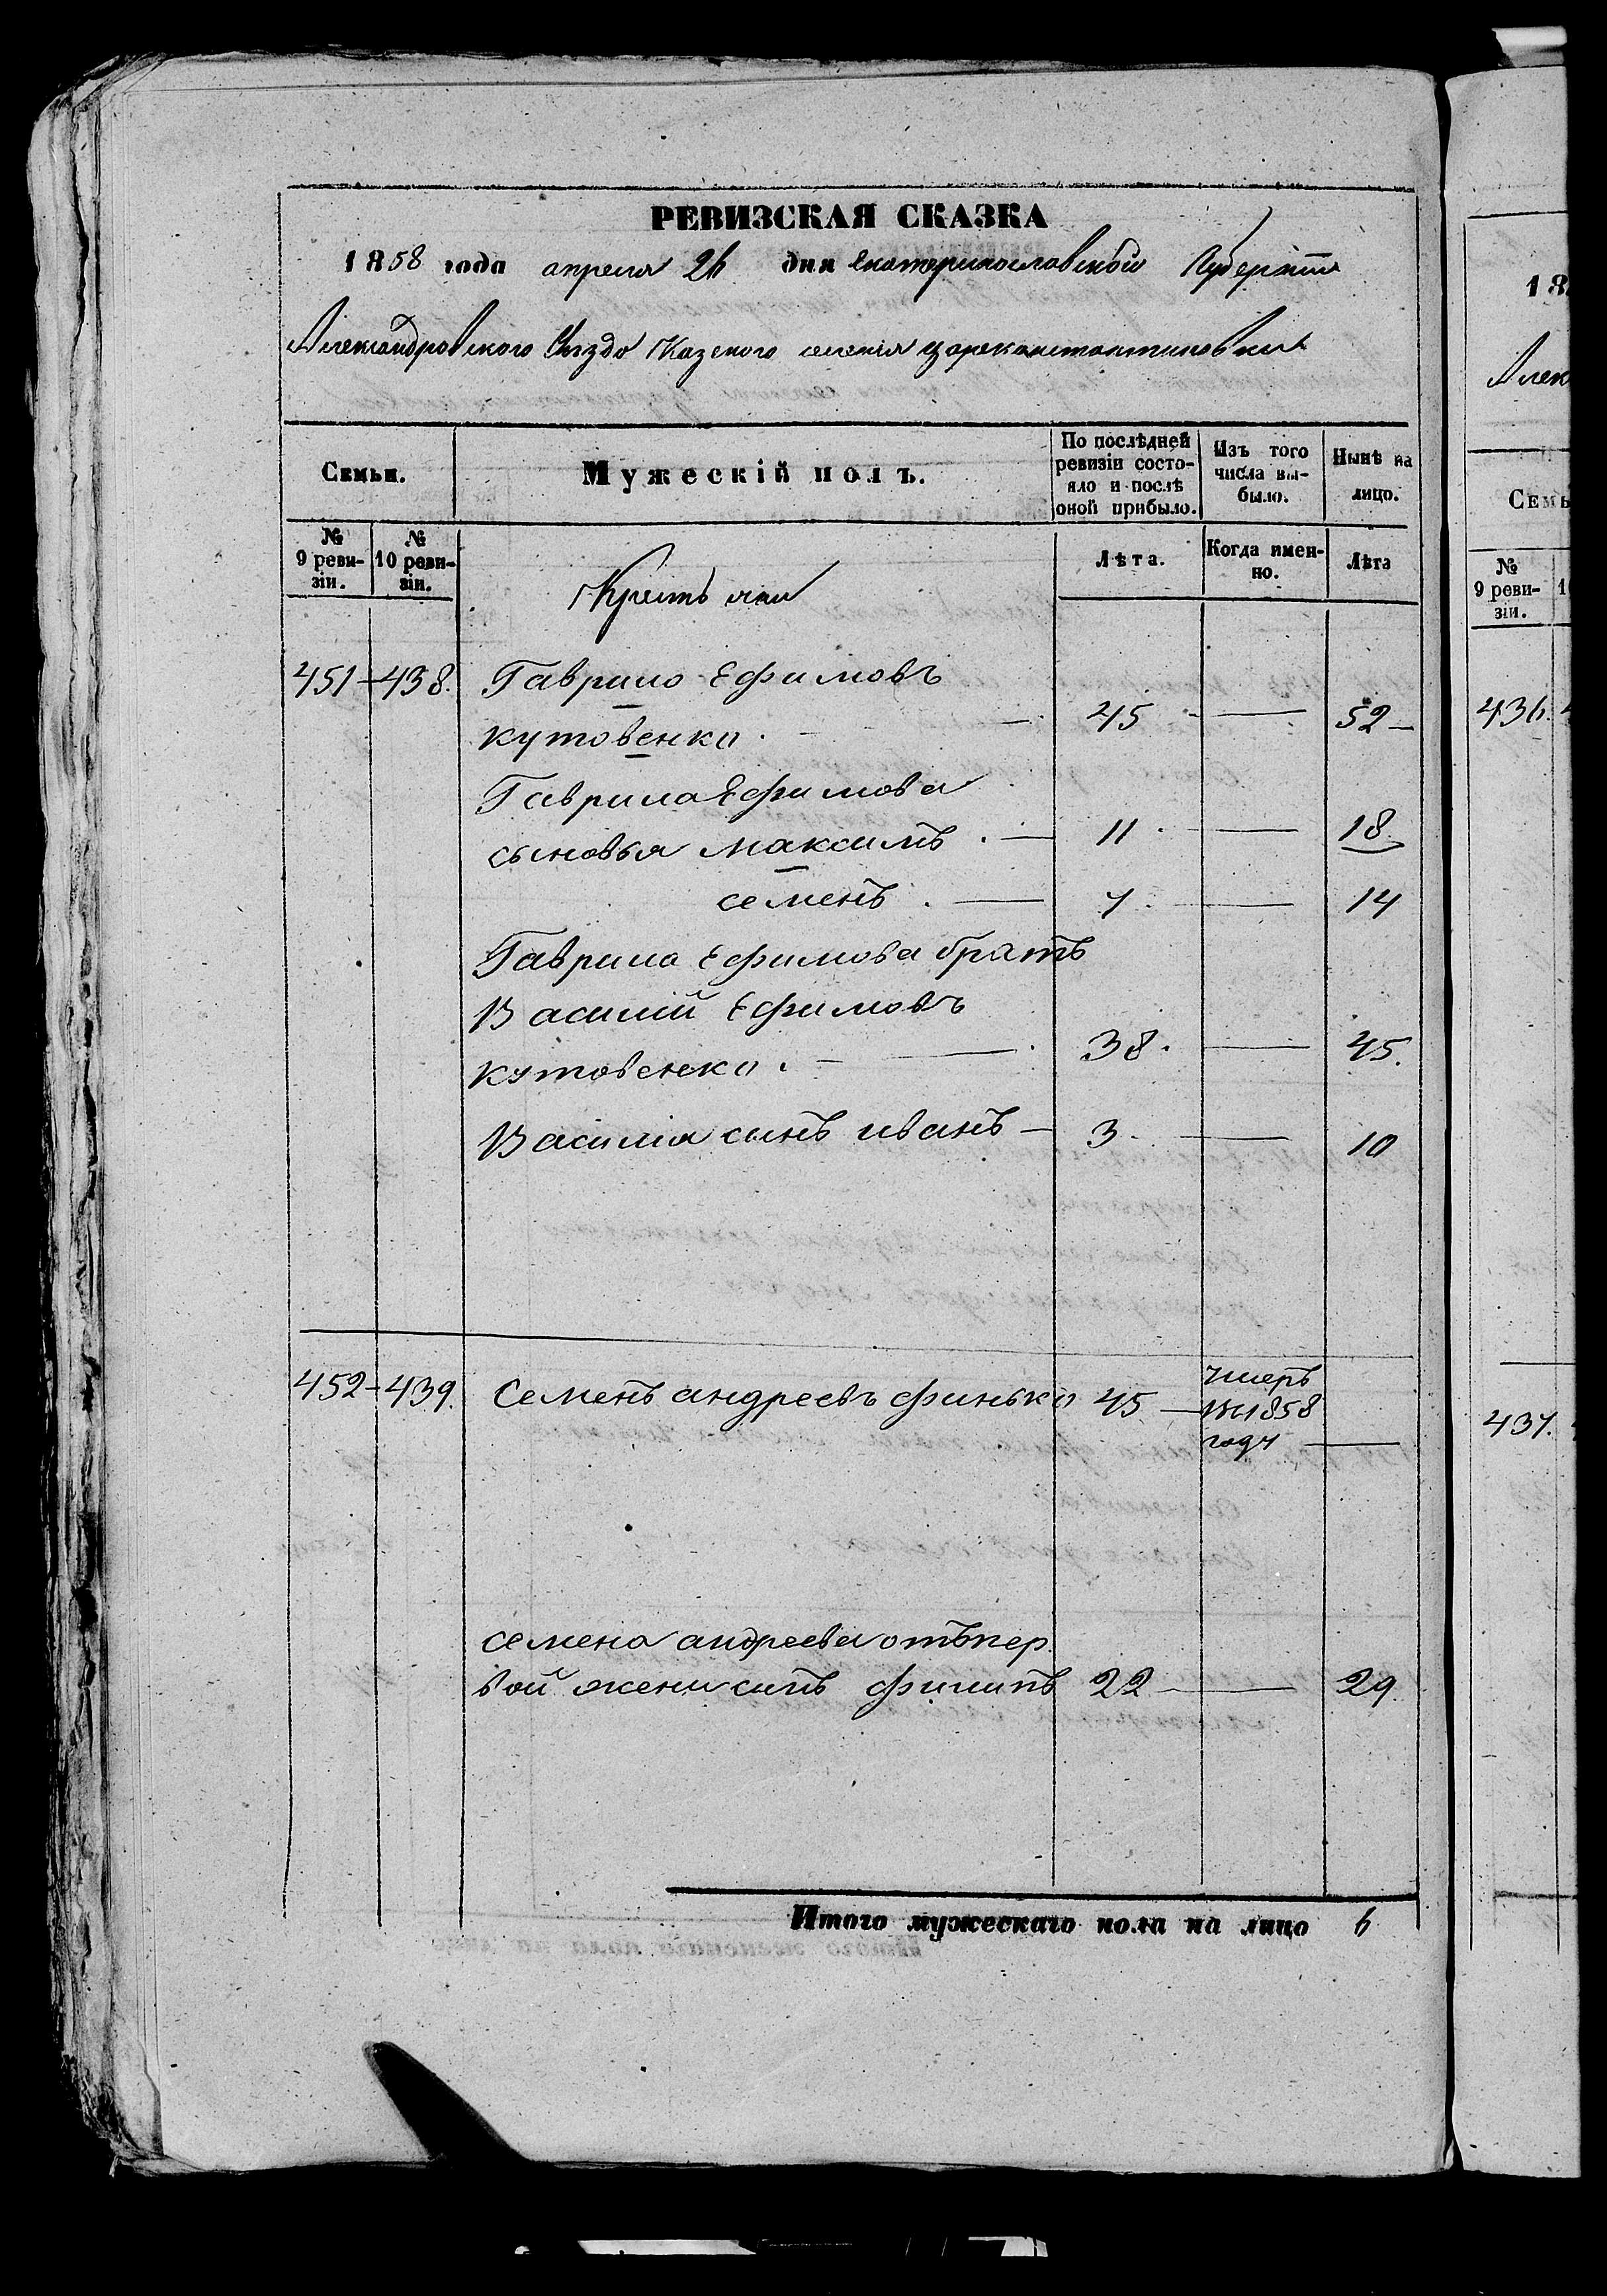 РЕВИЗСКАЯ СКАЗКА
1858 года апреля 26 дня Екатеринославской Губернии
Александровского Уезда Казеного селения Цареконстантиновки
Семьи.
Мужескій полъ.
По послѣдней ревизіи состо-
яло и послѣ
оной прибыло.
Изъ того
числа вы-
было.
Нынѣ на
лицо.
№
9 реви-
зіи.
№
10 реви-
зіи.
Крестьяни
Лѣта.
Когда имен-
но.
Лѣта
451 - 438. Гаврило Ефимовъ
кутовенко. 45 - — 52 -
Гаврила Ефимова
сыновья максимъ . — 11 . — 18.
семенъ . — 7 . — 14
Гаврила Ефимова братъ
Василій Ефимовъ
кутовенко . — 38 . — 45.
Василия сынъ иванъ — 3 . — 10
452 - 439. Семенъ андреевъ финько 45 — умеръ
въ 1858
году —
семена андреева отъ пер
вой жени сынъ филипъ 22 — — 29.
Итого мужескаго пола на лицо 6
18
Алек
Семь
№
9 реви-
зіи.
436.
437.